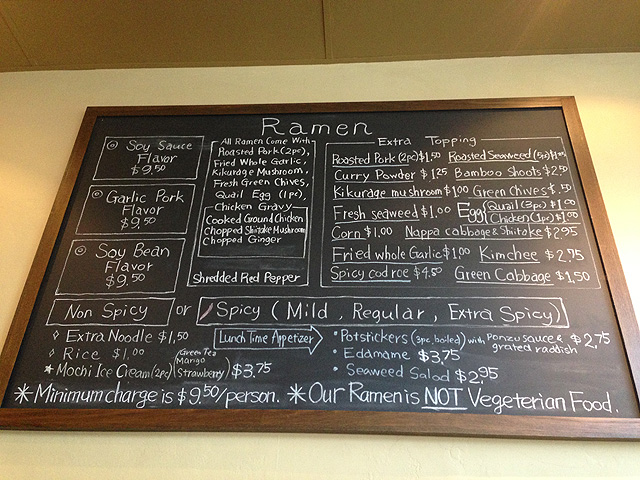 Ramen
Soy Sauce
Flavor
$9.50
Garlic Pork
Flavor
$9.50
Soy Bean
Flavor
$9.50
All Ramen Come With
Roasted Pork (2pc),
Fried Whole Garlic,
Kikurage Mushroom,
Fresh Green Chives,
Quail Egg (1pc),
Chicken Gravy
Cooked Ground Chicken
Chopped Shiitake Mushroom
Chopped Ginger
Shredded Red Pepper
Extra Topping
Roasted Pork (2pc) $1.50 Roasted Seaweed
Curry Powder $1.25 Bamboo Shoots $2.50
Kikurage mushroom $1.00 Green Chives $.50
Fresh seaweed $1.00 Egg (Quail (3pc) $1.00
(Chicken (1pc) $1.00
Corn $1.00 Nappa cabbage & Shiitake $2.95
Fried whole Garlic $1.00 Kimchee $2.75
Spicy cod roe $4.50 Green Cabbage $1.50
Non Spicy or Spicy (Mild, Regular, Extra Spicy)
◊ Extra Noodle $1.50
◊ Rice $1.00
★ Mochi Ice Cream (2pc) (Green Tea
Mango
Strawberry) $3.75
Lunch Time Appetizer
• Potstickers (3pc, boiled) with ponzu sauce & grated raddish $2.75
• Edamame $3.75
• Seaweed Salad $2.95
* Minimum charge is $9.50/person. * Our Ramen is NOT Vegeterian Food.